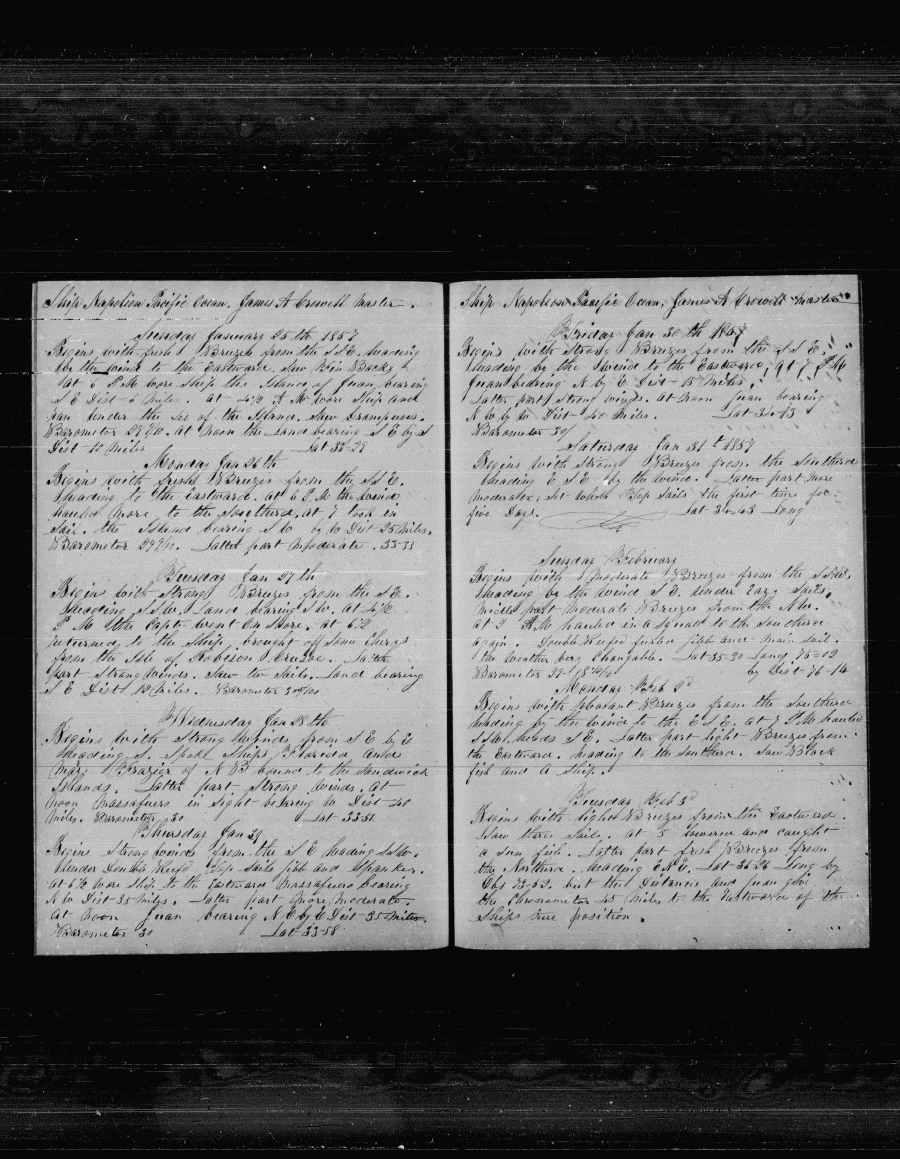 Ship Napoleon Pacific Ocean, James A Crowell Master.
Sunday January 25th 1857
Begins with fresh Breezes from the SSE heading
by the wind to the Eastward. Saw Fin Backs
at 6 P M wore Ship the Island of Juan bearing
S E Dist 6 Miles. at 4½ A M wore Ship and
ran under the lee of the Island. Saw Grampuses.
Barometer at Noon the Land bearing S E by S
Dist 10 Miles Lat 33-28
Monday Jan 26th
Begins with fresh Breezes from the S S E.
heading to the Eastward. at 6 P M the wind
hauled more to the Southerd. at 7 took in
Sail. the Island bearing S W by W Dist 25 Miles.
Barometer 29 9/10. Latter part Moderate. 33-33
Tuesday Jan 27th
Begins with Strong Breezes from the S E.
heading S S W. Land bearing S W. at 4½
P M the Capt went On Shore. at 6½
returned to the Ship. brought off Some Cherys
from the Isle of Robison Crusoe. Latter
part Strong Winds. Saw two Sails. Land bearing
S E Dist 12 Miles. Barometer
Wednesday Jan 28th
Begins with Strong Winds from S E by E
heading S. Spoke Ships Florida and
Mary Frazier of N B bound to the Sandwich
Islands. Latter part Strong winds. At
Noon Massafuero in Sight bearing W Dist 40
Miles. Barometer 30 Lat 33-51
Thursday Jan 29
Begins Strong winds from the S E heading S S W.
Under Double Reefd Top Sails jibb and Spanker.
at 6½ Wore Ship to the Eastward Massafuero bearing
N W Dist 35 Miles. Latter part More Moderate.
At Noon Juan bearing N E by E Dist 35 Miles.
Barometer 30 Lat 33-58
Ship Napoleon Pacific Ocean, James A Crowell Master
Friday Jan 30th 1857
Begins with Strong Breezes from the S S E.
heading by the Wind to the Eastward, at 7 P M
Juan bearing N by E Dist 15 Miles.
Latter part Strong winds. at Noon Juan bearing
N W by W Dist 40 Miles. Lat 34-13
Barometer 30
Saturday Jan 31t 1857
Begins with Strong Breezes from the Southerd
heading E S E by the wind. Latter part more
moderate. Set whole Top Sails the first time for
five Days. Lat 34-43 Long
Sunday February
Begins with Moderate Breezes from the
heading by the Wind S E. Under Eazy Sails.
Middle part Moderate Breezes from the N W.
at 2 A M hauled in a Squall to the Southerd
again. Double Reefed furled jibb and Main Sail.
the Weather very Changable. Lat 35-30 Long 75-12
Barometer by Dist 76-14
Monday Feb 2d
Begins with pleasant Breezes from the Southerd
heading by the wind to the E S E. at 7 P M Hauled
S S W. heads S E. Latter part light Breezes from
the Eastward. heading to the Southerd. Saw Black
fish and a Ship.
Tuesday Feb 3d
Begins with light Breezes from the Eastwerd.
Saw three Sails. at 5 lowered and caught
a Sun fish. Latter part fresh Breezes from
the Northerd. heading E N E. Lat 36-26 Long by
Obs 73-52. but the Distance and Juan give
the Chronometer 45 Miles to the Eastward of the
Ships true position.